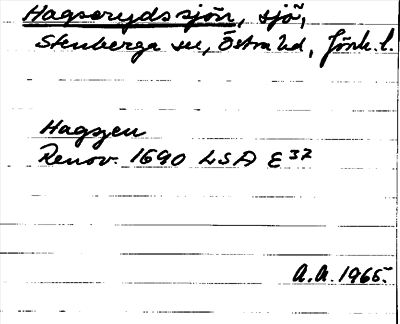 Hagserydssjön, sjö,
Stenberga sn, Östra hd, Jönk. l.
Hagsjen
Renov. 1690 LSA E 37
A.A. 1965.